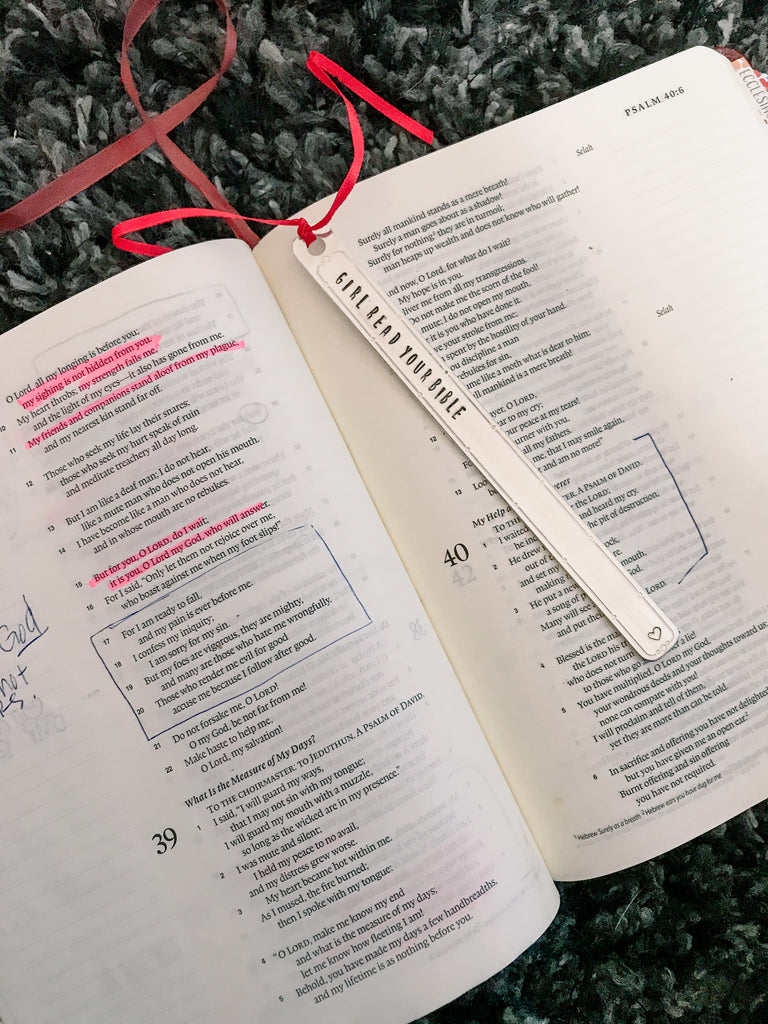 O Lord, all my longing is before you;
my sighing is not hidden from you.
10 My heart throbs; my strength fails me,
and the light of my eyes—it also has gone from me.
11 My friends and companions stand aloof from my plague,
and my nearest kin stand far off.
12 Those who seek my life lay their snares;
those who seek my hurt speak of ruin
and meditate treachery all day long.
13 But I am like a deaf man; I do not hear,
like a mute man who does not open his mouth.
14 I have become like a man who does not hear,
and in whose mouth are no rebukes.
15 But for you, O LORD, do I wait;
it is you, O Lord my God, who will answer.
16 For I said, "Only let them not rejoice over me,
who boast against me when my foot slips!"
17 For I am ready to fall,
and my pain is ever before me.
18 I confess my iniquity;
I am sorry for my sin.
19 But my foes are vigorous, they are mighty,
and many are those who hate me wrongfully.
20 Those who render me evil for good
accuse me because I follow after good.
21 Do not forsake me, O LORD!
O my God, be not far from me!
22 Make haste to help me,
O Lord, my salvation!
What Is the Measure of My Days?
TO THE CHOIRMASTER: TO JEDUTHUN. A PSALM OF DAVID.
39
1 I said, "I will guard my ways,
that I may not sin with my tongue;
I will guard my mouth with a muzzle,
so long as the wicked are in my presence."
2 I was mute and silent;
I held my peace to no avail,
and my distress grew worse.
3 My heart became hot within me.
As I mused, the fire burned;
then I spoke with my tongue:
4 "O LORD, make me know my end
and what is the measure of my days;
let me know how fleeting I am!
5 Behold, you have made my days a few handbreadths,
and my lifetime is as nothing before you.
God
not
PSALM 40:6
ECCLESIA
Surely all mankind stands as a mere breath! Selah
Surely a man goes about as a shadow!
Surely for nothing¹ they are in turmoil;
man heaps up wealth and does not know who will gather!
nd now, O Lord, for what do I wait?
My hope is in you.
liver me from all my transgressions.
Do not make me the scorn of the fool!
mute; I do not open my mouth,
it is you who have done it.
ve your stroke from me;
spent by the hostility of your hand.
ou discipline a man
ebukes for sin,
me like a moth what is dear to him;
ll mankind is a mere breath! Selah
12 yer, O LORD,
ar to my cry;
our peace at my tears!
urner with you,
all my fathers.
13 Loo me, that I may smile again,
t and am no more!"
My Help
TO TH TER. A PSALM OF DAVID.
40
1 I waited the LORD;
he in and heard my cry.
2 He drew he pit of destruction,
out of
and set my ock,
making
3 He put a new mouth,
a song of God.
Many will see
and put the LORD.
4 Blessed is the ma
the LORD his
who does not turn
to those who go a lie!
5 You have multiplied, O LORD my God,
your wondrous deeds and your thoughts toward us;
none can compare with you!
I will proclaim and tell of them,
yet they are more than can be told.
6 In sacrifice and offering you have not delighted,
but you have given me an open ear.²
Burnt offering and sin offering
you have not required.
¹ Hebrew Surely as a breath ² Hebrew ears you have dug for me
GIRL READ YOUR BIBLE